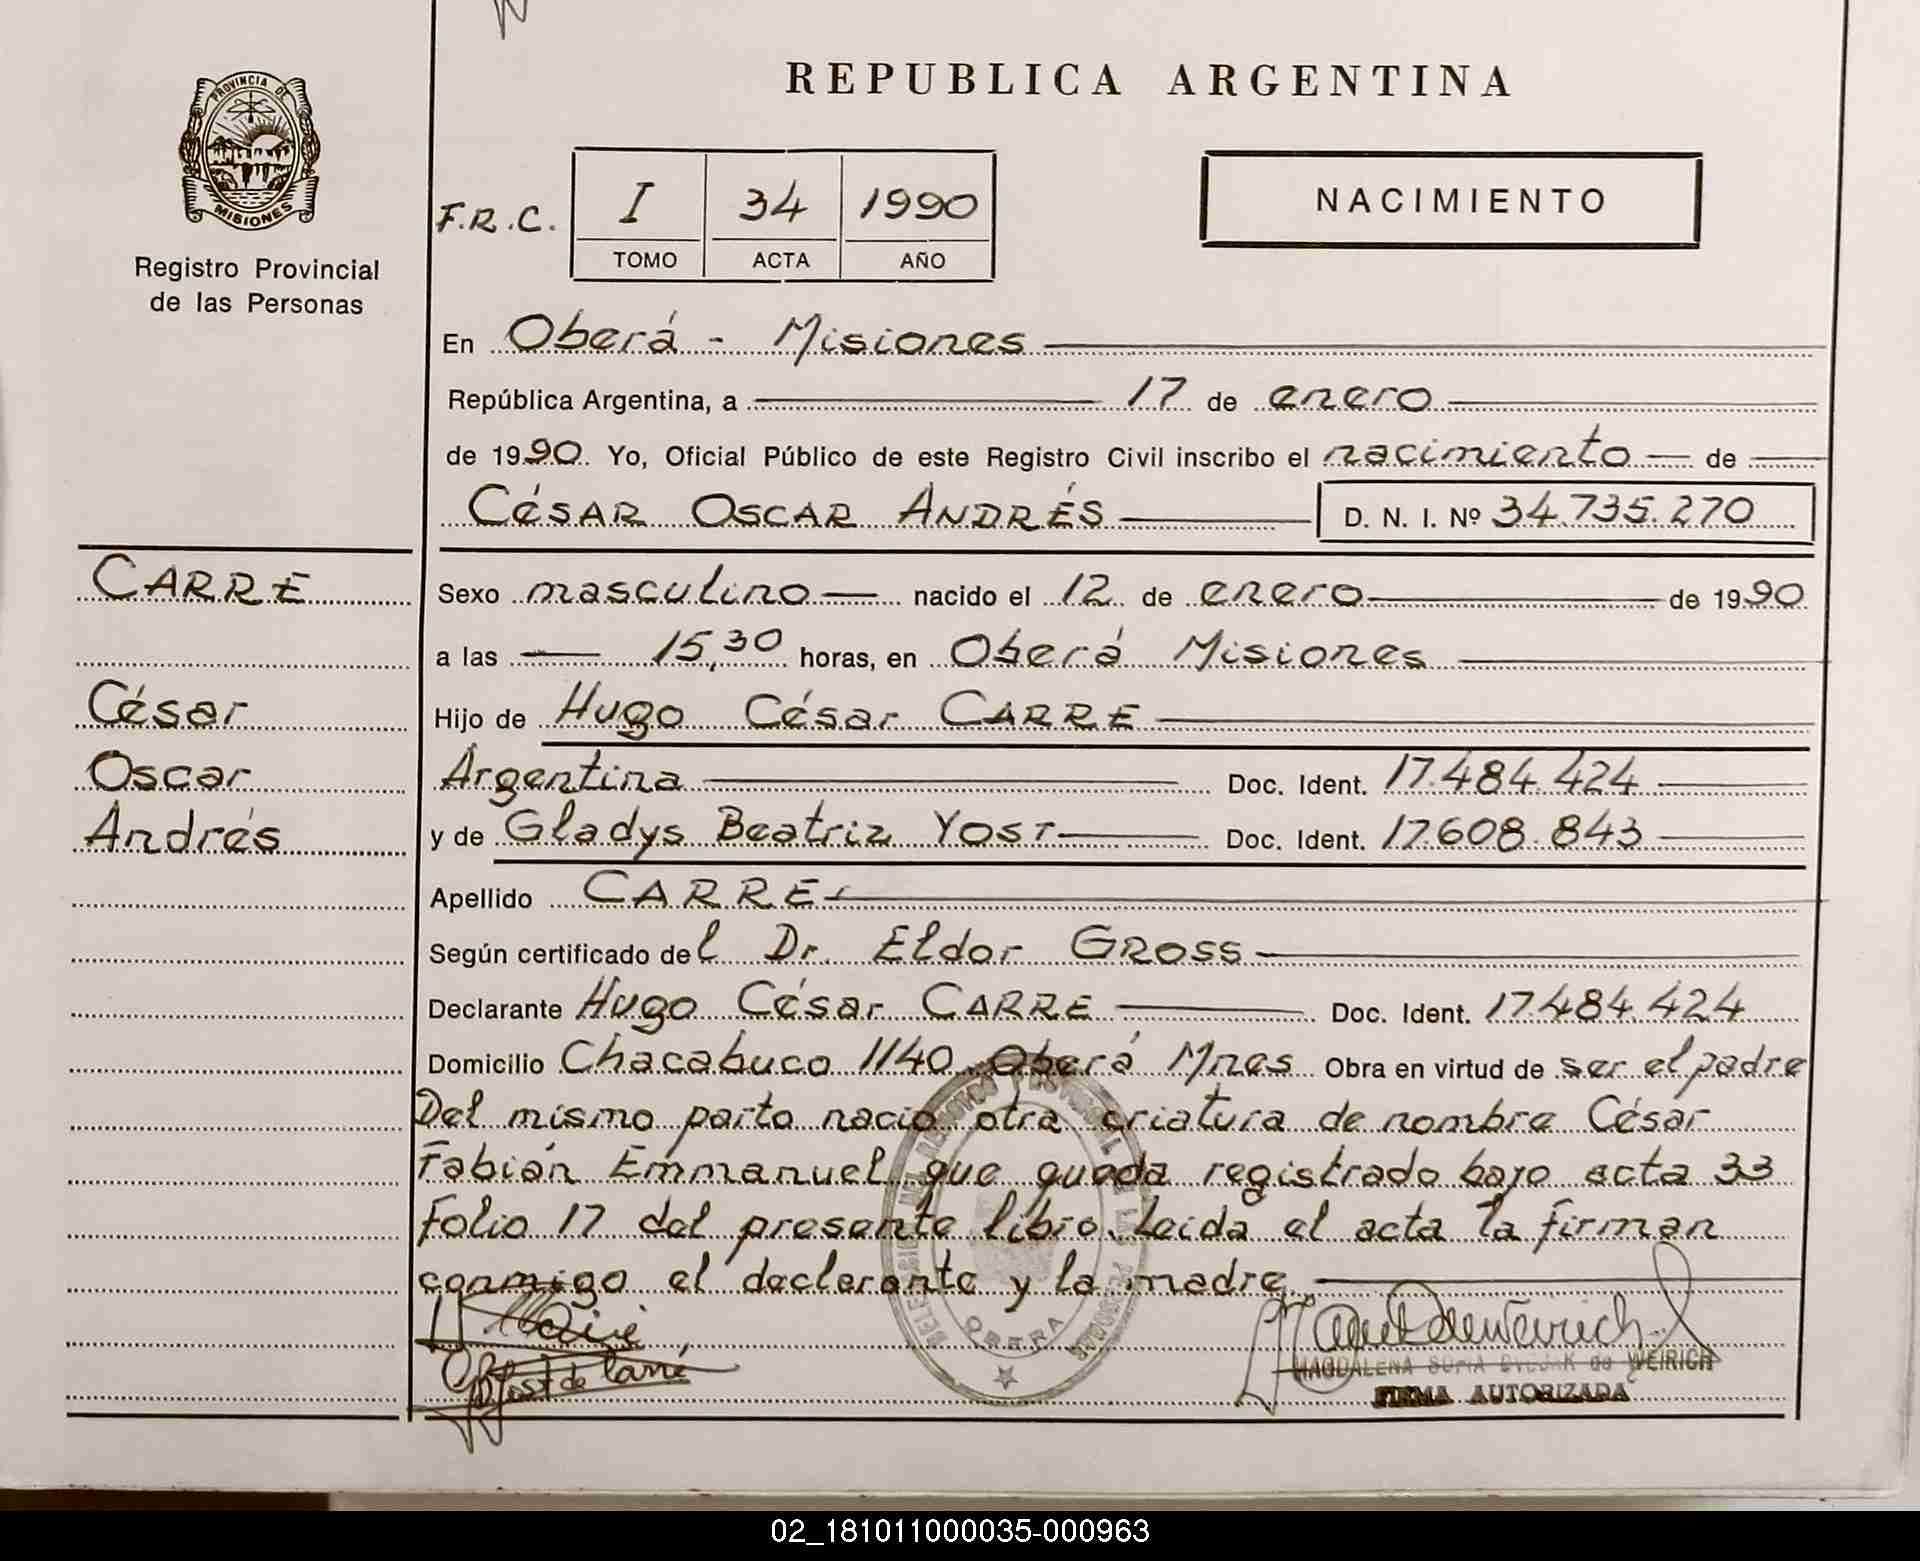 REPUBLICA ARGENTINA
PROVINCIA DE MISIONES
Registro Provincial
de las Personas
F.R.C.
I 34 1990
TOMO ACTA AÑO
NACIMIENTO
En Oberá - Misiones
República Argentina, a 17 de enero
de 1990. Yo, Oficial Público de este Registro Civil inscribo el nacimiento de
CÉSAR OSCAR ANDRÉS D. N. I. Nº 34.735.270
CARRE
César
Oscar
Andrés
Sexo masculino nacido el 12 de enero de 1990
a las 15,30 horas, en Oberá Misiones
Hijo de Hugo César CARRE
Argentina Doc. Ident. 17.484.424
y de Gladys Beatriz YOST Doc. Ident. 17.608.843
Apellido CARRE
Según certificado del Dr. Eldor GROSS
Declarante Hugo César CARRE Doc. Ident. 17.484.424
Domicilio Chacabuco 1140 Oberá Mnes Obra en virtud de ser el padre
Del mismo parto nació otra criatura de nombre César
Fabián Emmanuel que queda registrado bajo acta 33
Folio 17 del presente libro. Leida el acta la firman
conmigo el declarante y la madre
OBERA
MAGDALENA SOFIA de WEIRICH
FIRMA AUTORIZADA
02_181011000035-000963